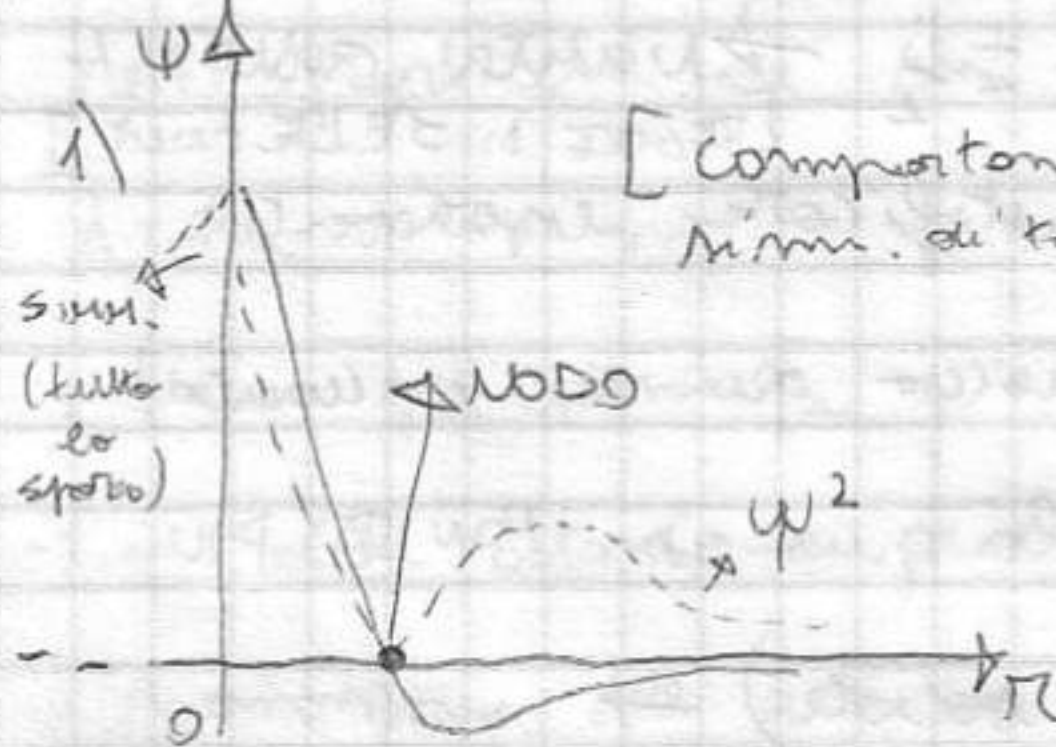 ψ
1)
[ Comporton
simm. di t
simm.
(tutto
lo
spazio)
NODO
ψ²
0
r